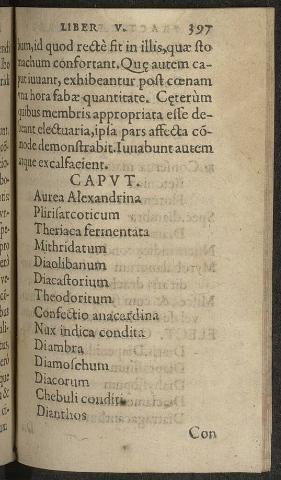 LIBER V. 397
bum, id quod rectè fit in illis, quæ sto
machum confortant. Quę autem ca-
put iuuant, exhibeantur post cœnam
vna hora fabæ quantitate. Cęterùm
quibus membris appropriata esse de-
beant electuaria, ipsa pars affecta cō-
mode demonstrabit. Iuuabunt autem
atque excalfacient.
CAPVT.
Aurea Alexandrina
Plirisarcoticum
Theriaca fermentata
Mithridatum
Diaolibanum
Diacastorium
Theodoritum
Confectio anacardina
Nux indica condita
Diambra
Diamoschum
Diacorum
Chebuli conditi
Dianthos
Con